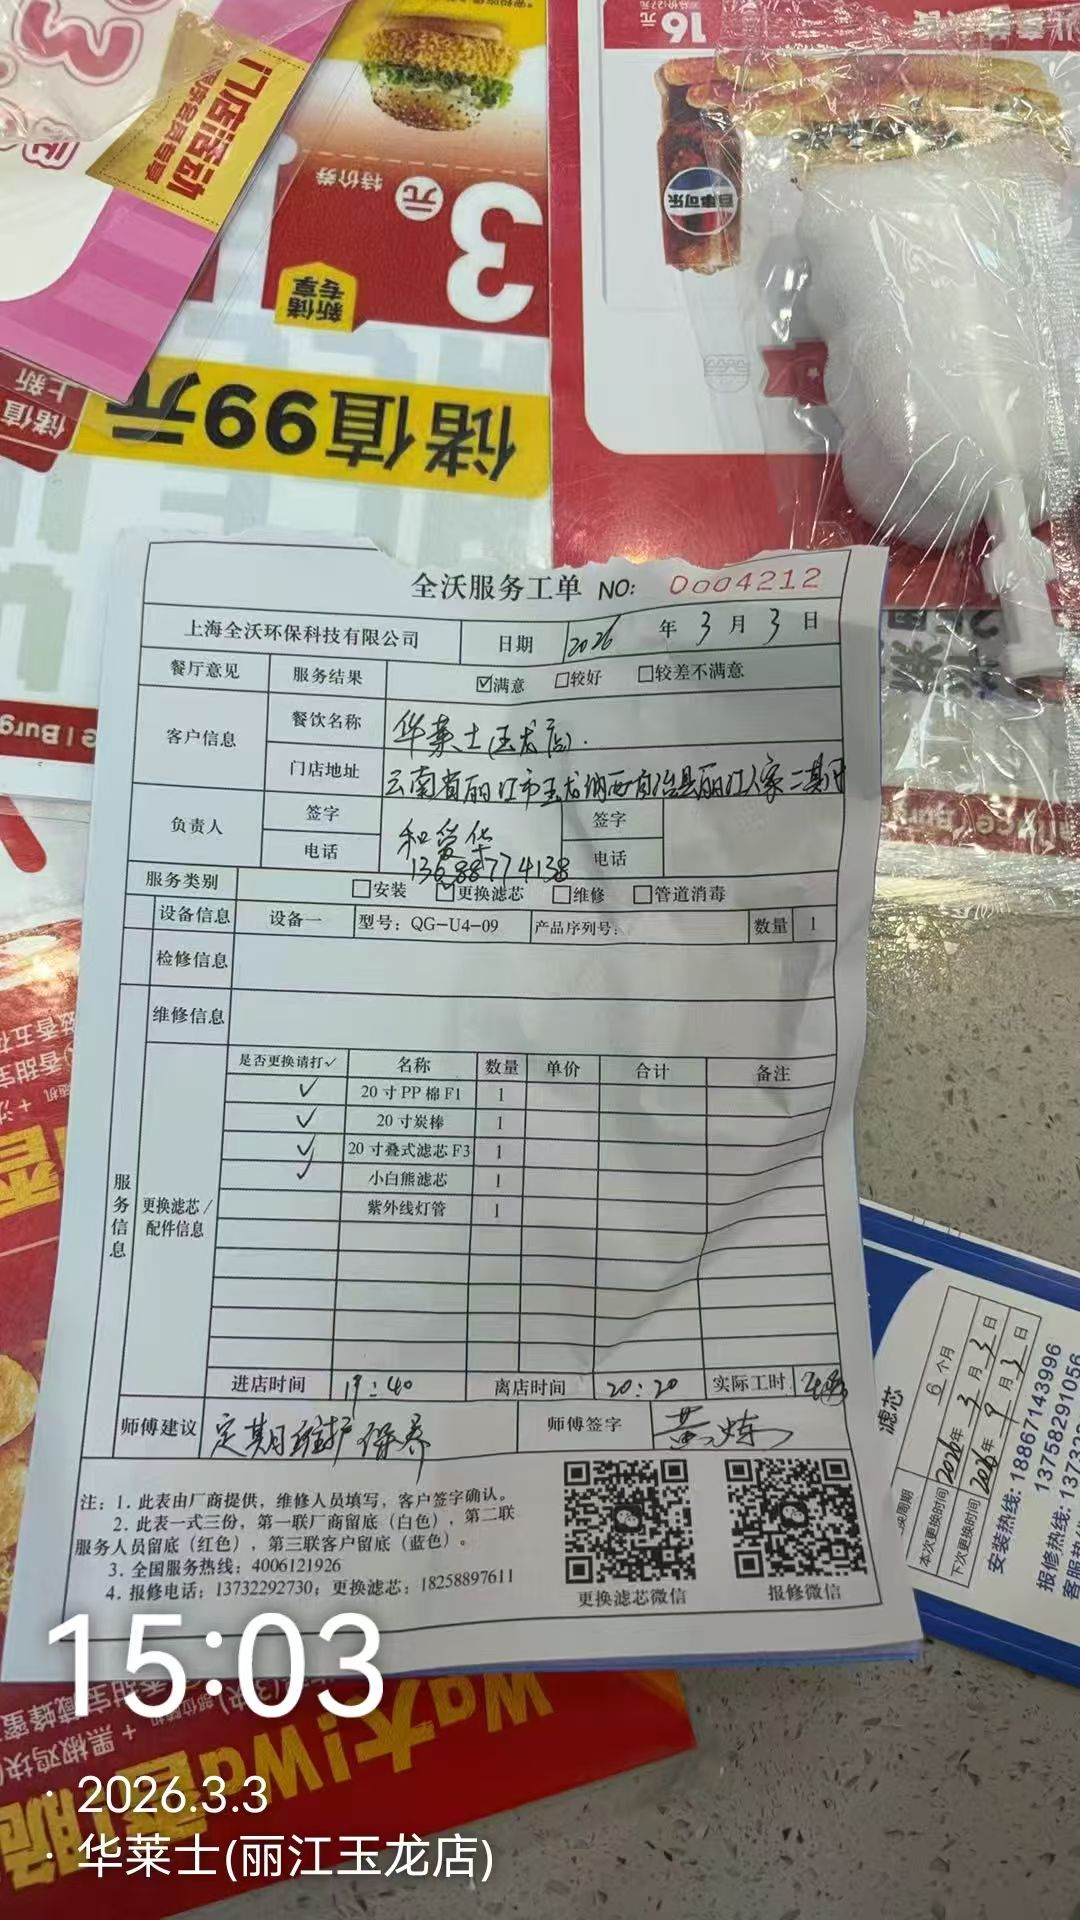 门店活动
3
元
特价券
新储
专享
储值99元
储值
上新
16
元
百事可乐
全沃服务工单 NO: 0004212
上海全沃环保科技有限公司 日期 2026 年 3 月 3 日
餐厅意见 服务结果 ☑满意 □较好 □较差不满意
客户信息 餐饮名称 华莱士(玉龙店).
门店地址 云南省丽江市玉龙纳西自治县丽江人家二期
负责人 签字 和爱华 签字
电话 13688774138 电话
服务类别 □安装 ☑更换滤芯 □维修 □管道消毒
设备信息 设备一 型号：QG-U4-09 产品序列号： 数量 1
检修信息
维修信息
服务信息
更换滤芯/
配件信息
是否更换请打✓ 名称 数量 单价 合计 备注
✓ 20寸PP棉F1 1
✓ 20寸炭棒 1
✓ 20寸叠式滤芯F3 1
✓ 小白熊滤芯 1
紫外线灯管 1
进店时间 19:40 离店时间 20:20 实际工时
师傅建议 定期维护保养 师傅签字 黄炼
注：1. 此表由厂商提供，维修人员填写，客户签字确认。
2. 此表一式三份，第一联厂商留底（白色），第二联
服务人员留底（红色），第三联客户留底（蓝色）。
3. 全国服务热线：4006121926
4. 报修电话：13732292730；更换滤芯：18258897611
更换滤芯微信
报修微信
滤芯
换周期 6 个月
本次更换时间 2026年 3 月 3 日
下次更换时间 2026年 9 月 3 日
安装热线: 18867143996
13758291056
报修热线: 1373
客服热
15:03
· 2026.3.3
· 华莱士(丽江玉龙店)